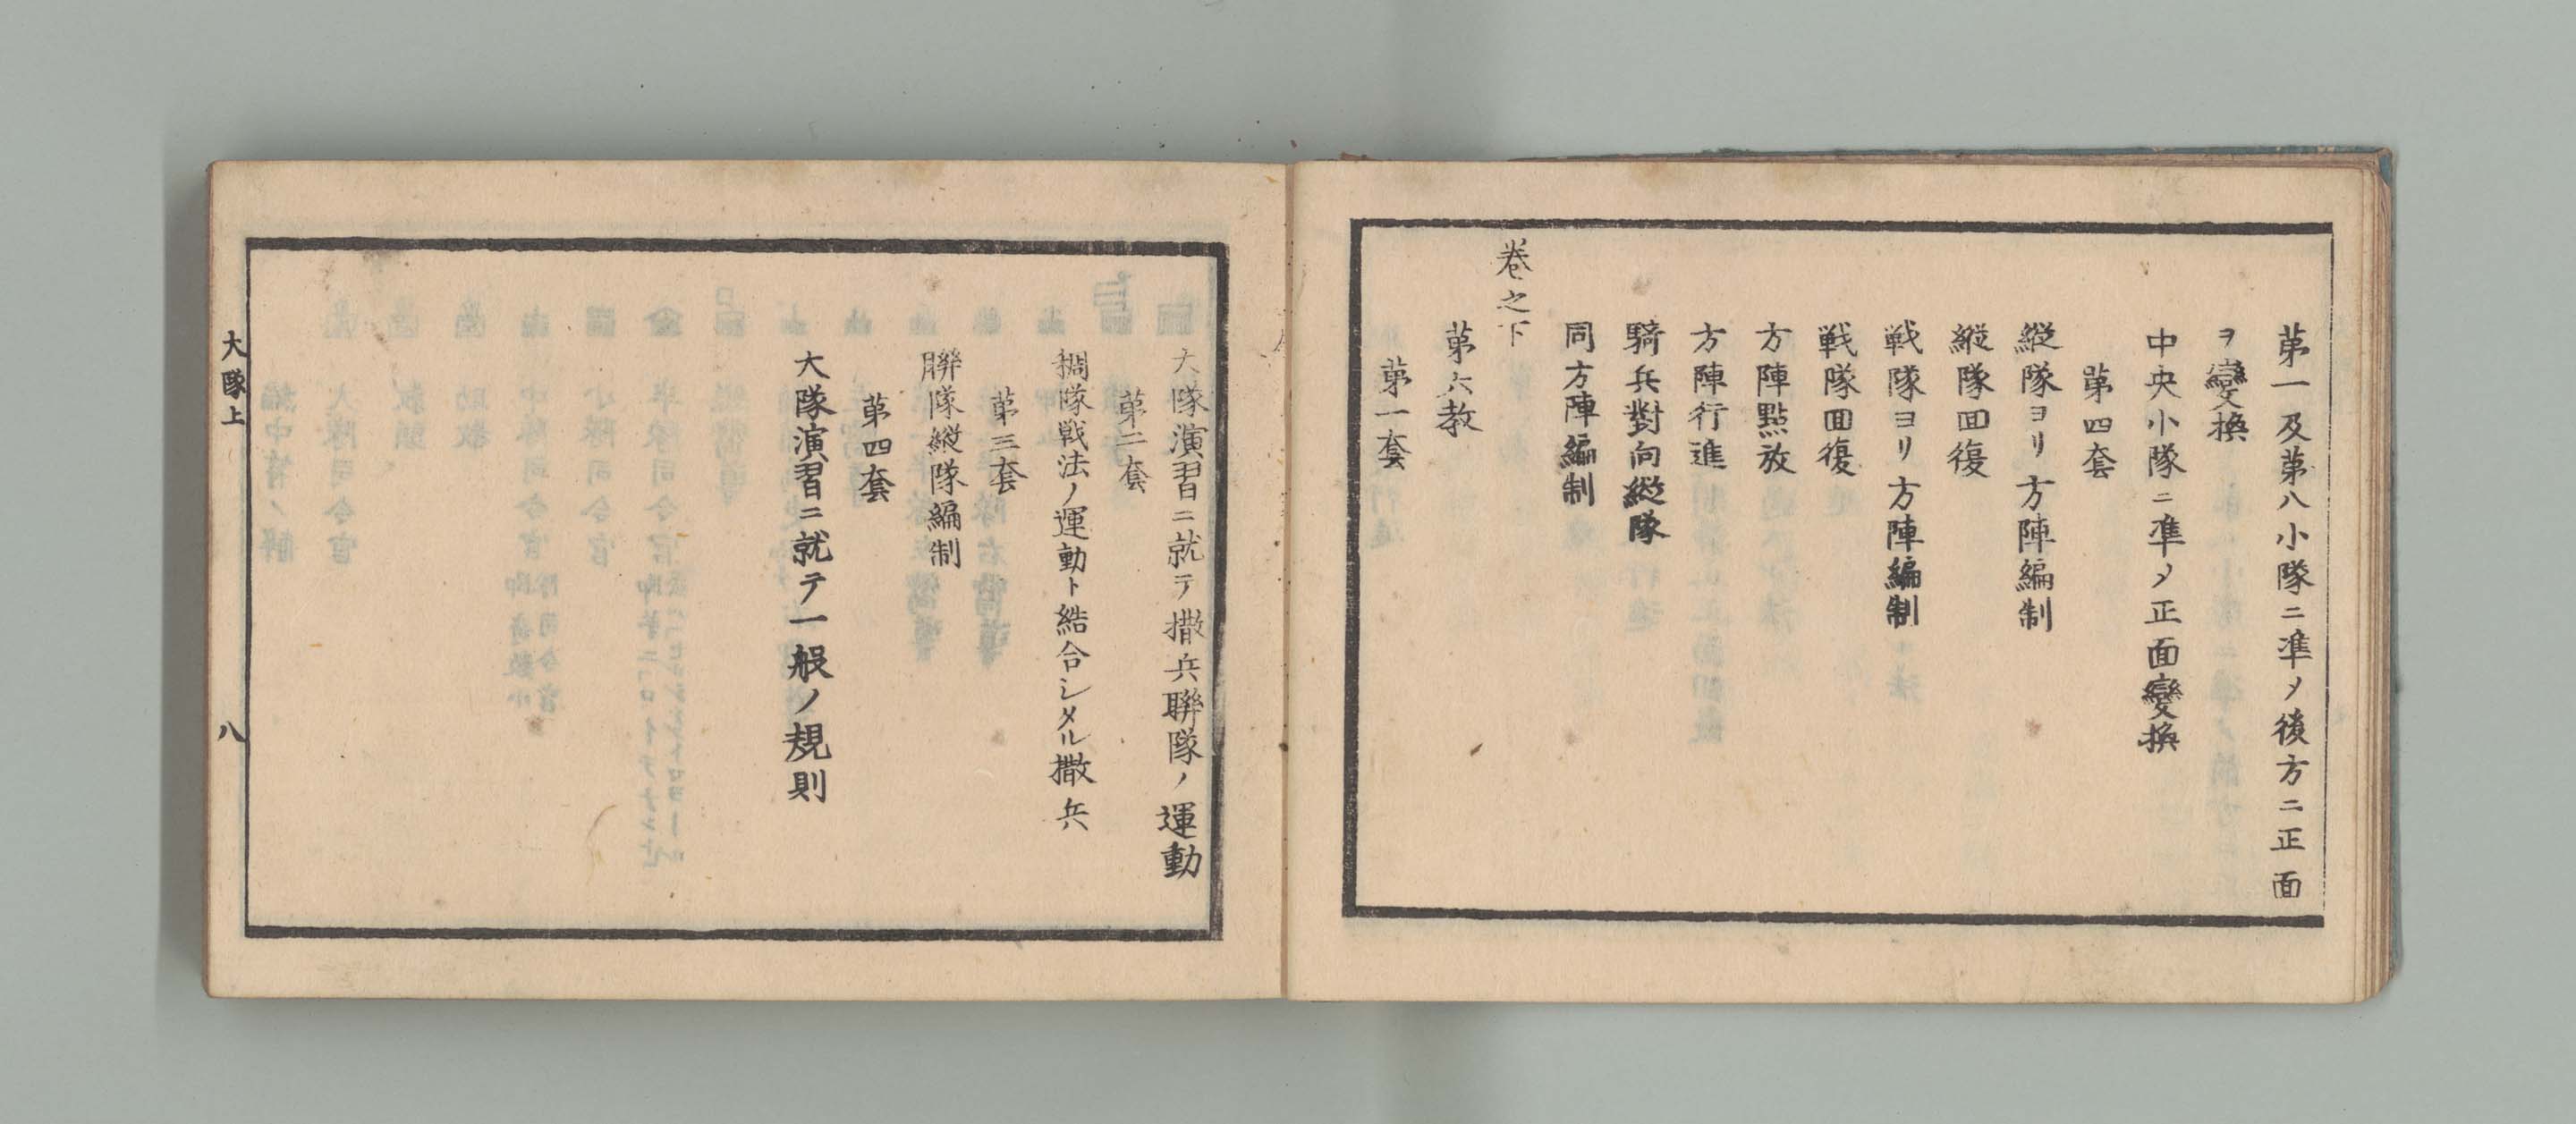 第一及第八小隊ニ準メ後方ニ正面
ヲ變換
中央小隊ニ準メ正面變換
第四套
縦隊ヨリ方陣編制
縦隊回復
戦隊ヨリ方陣編制
戦隊回復
方陣點放
方陣行進
騎兵對向縦隊
同方陣編制
巻之下
第六教
第一套
大隊演習ニ就テ撒兵聯隊ノ運動
第二套
稠隊戦法ノ運動ト結合シメル撒兵
第三套
聯隊縦隊編制
第四套
大隊演習ニ就テ一般ノ規則
大隊上
八